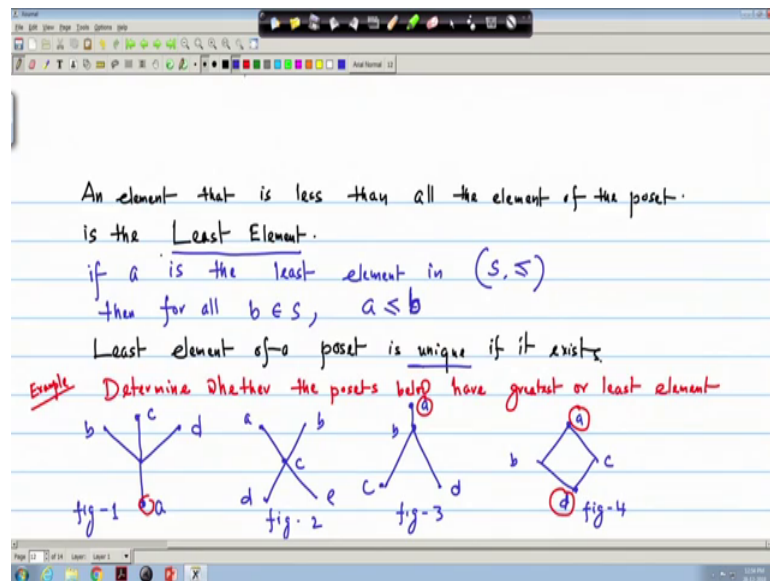 File Edit View Page Tools Options Help
Arial Normal 12
An element that is less than all the element of the poset.
is the Least Element.
if a is the least element in (S, ≤)
then for all b ∈ S, a ≤ b
Least element of a poset is unique if it exists.
Example Determine whether the posets below have greatest or least element
b c d a
fig-1
a b c d e
fig-2
a b c d
fig-3
a b c d
fig-4
Page 12 of 14 Layer: Layer 1